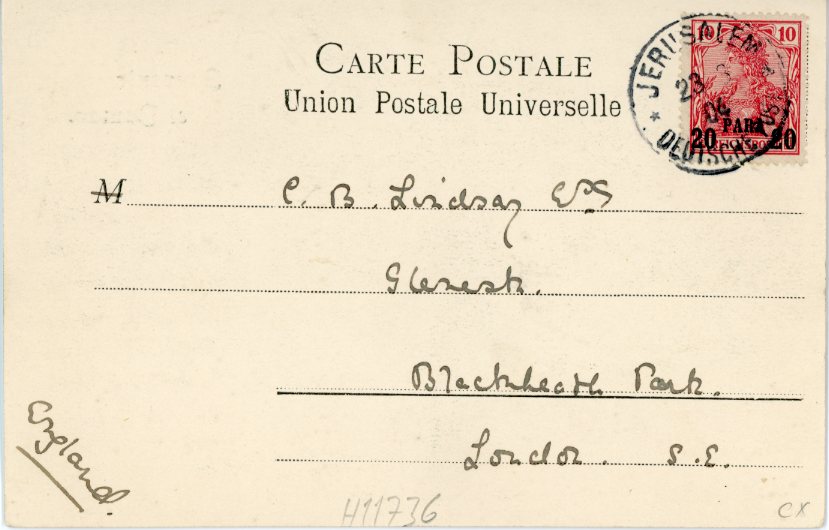 CARTE POSTALE
Union Postale Universelle
JERUSALEM
23
04
DEUTSCHE
10
20 PARA 20
M C. B. Lindsay Esq
Glenesk.
Blackheath Park.
London. S.E.
England.
H11736
CX